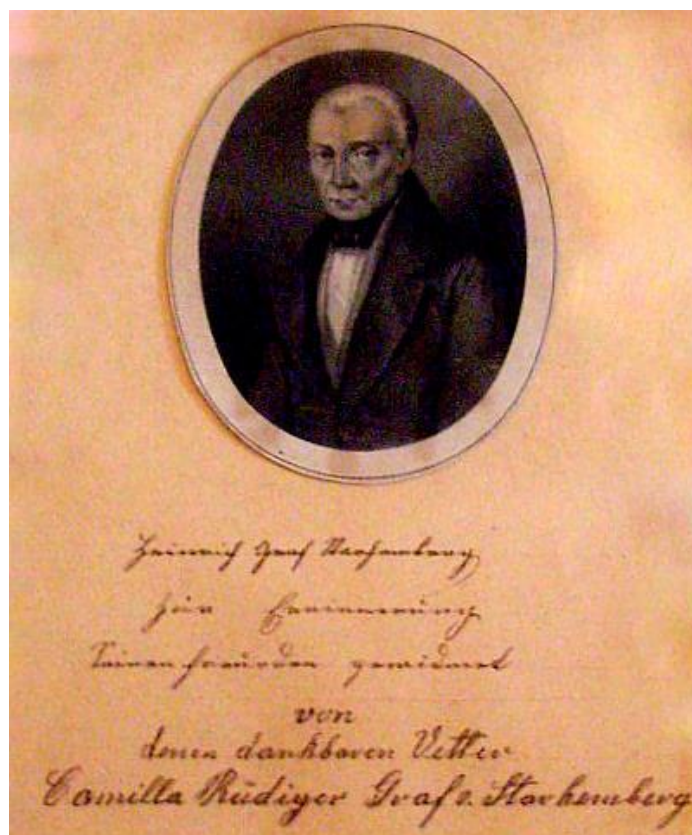 Heinrich Graf Starhemberg
zur Erinnerung
Seinen Freunden gewidmet
von
dankbaren Vetter
Camillo Rüdiger Graf v. Starhemberg